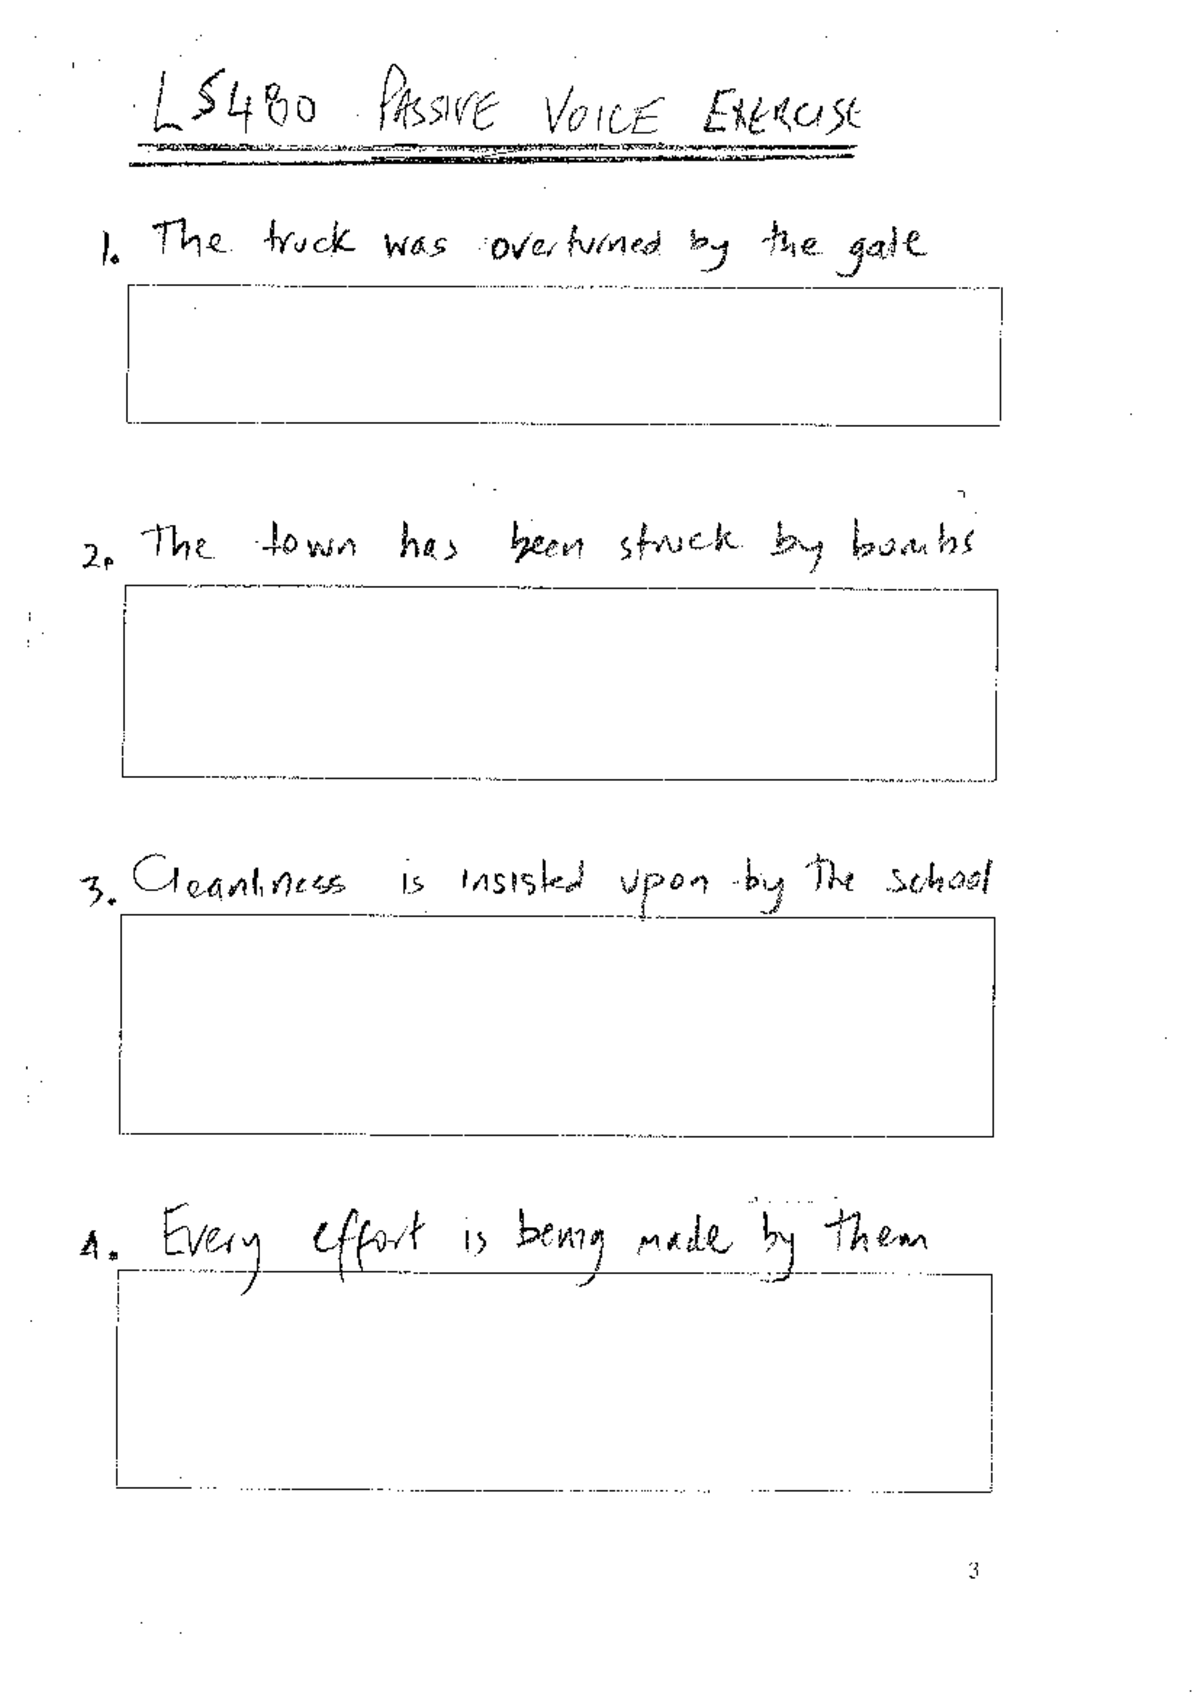 LS480 PASSIVE VOICE EXERCISE
1. The truck was overturned by the gale
2. The town has been struck by bombs
3. Cleanliness is insisted upon by the school
4. Every effort is being made by them
3